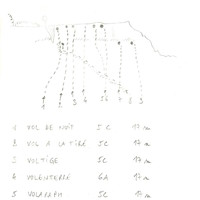 1 2 3 4 5 6 7 8 9
1 VOL DE NUIT 5C 17m
2 VOL A LA TIRE 5C 17m
3 VOLTIGE 5C 17m
4 VOLENTERRE 6A 17m
5 5C 17m